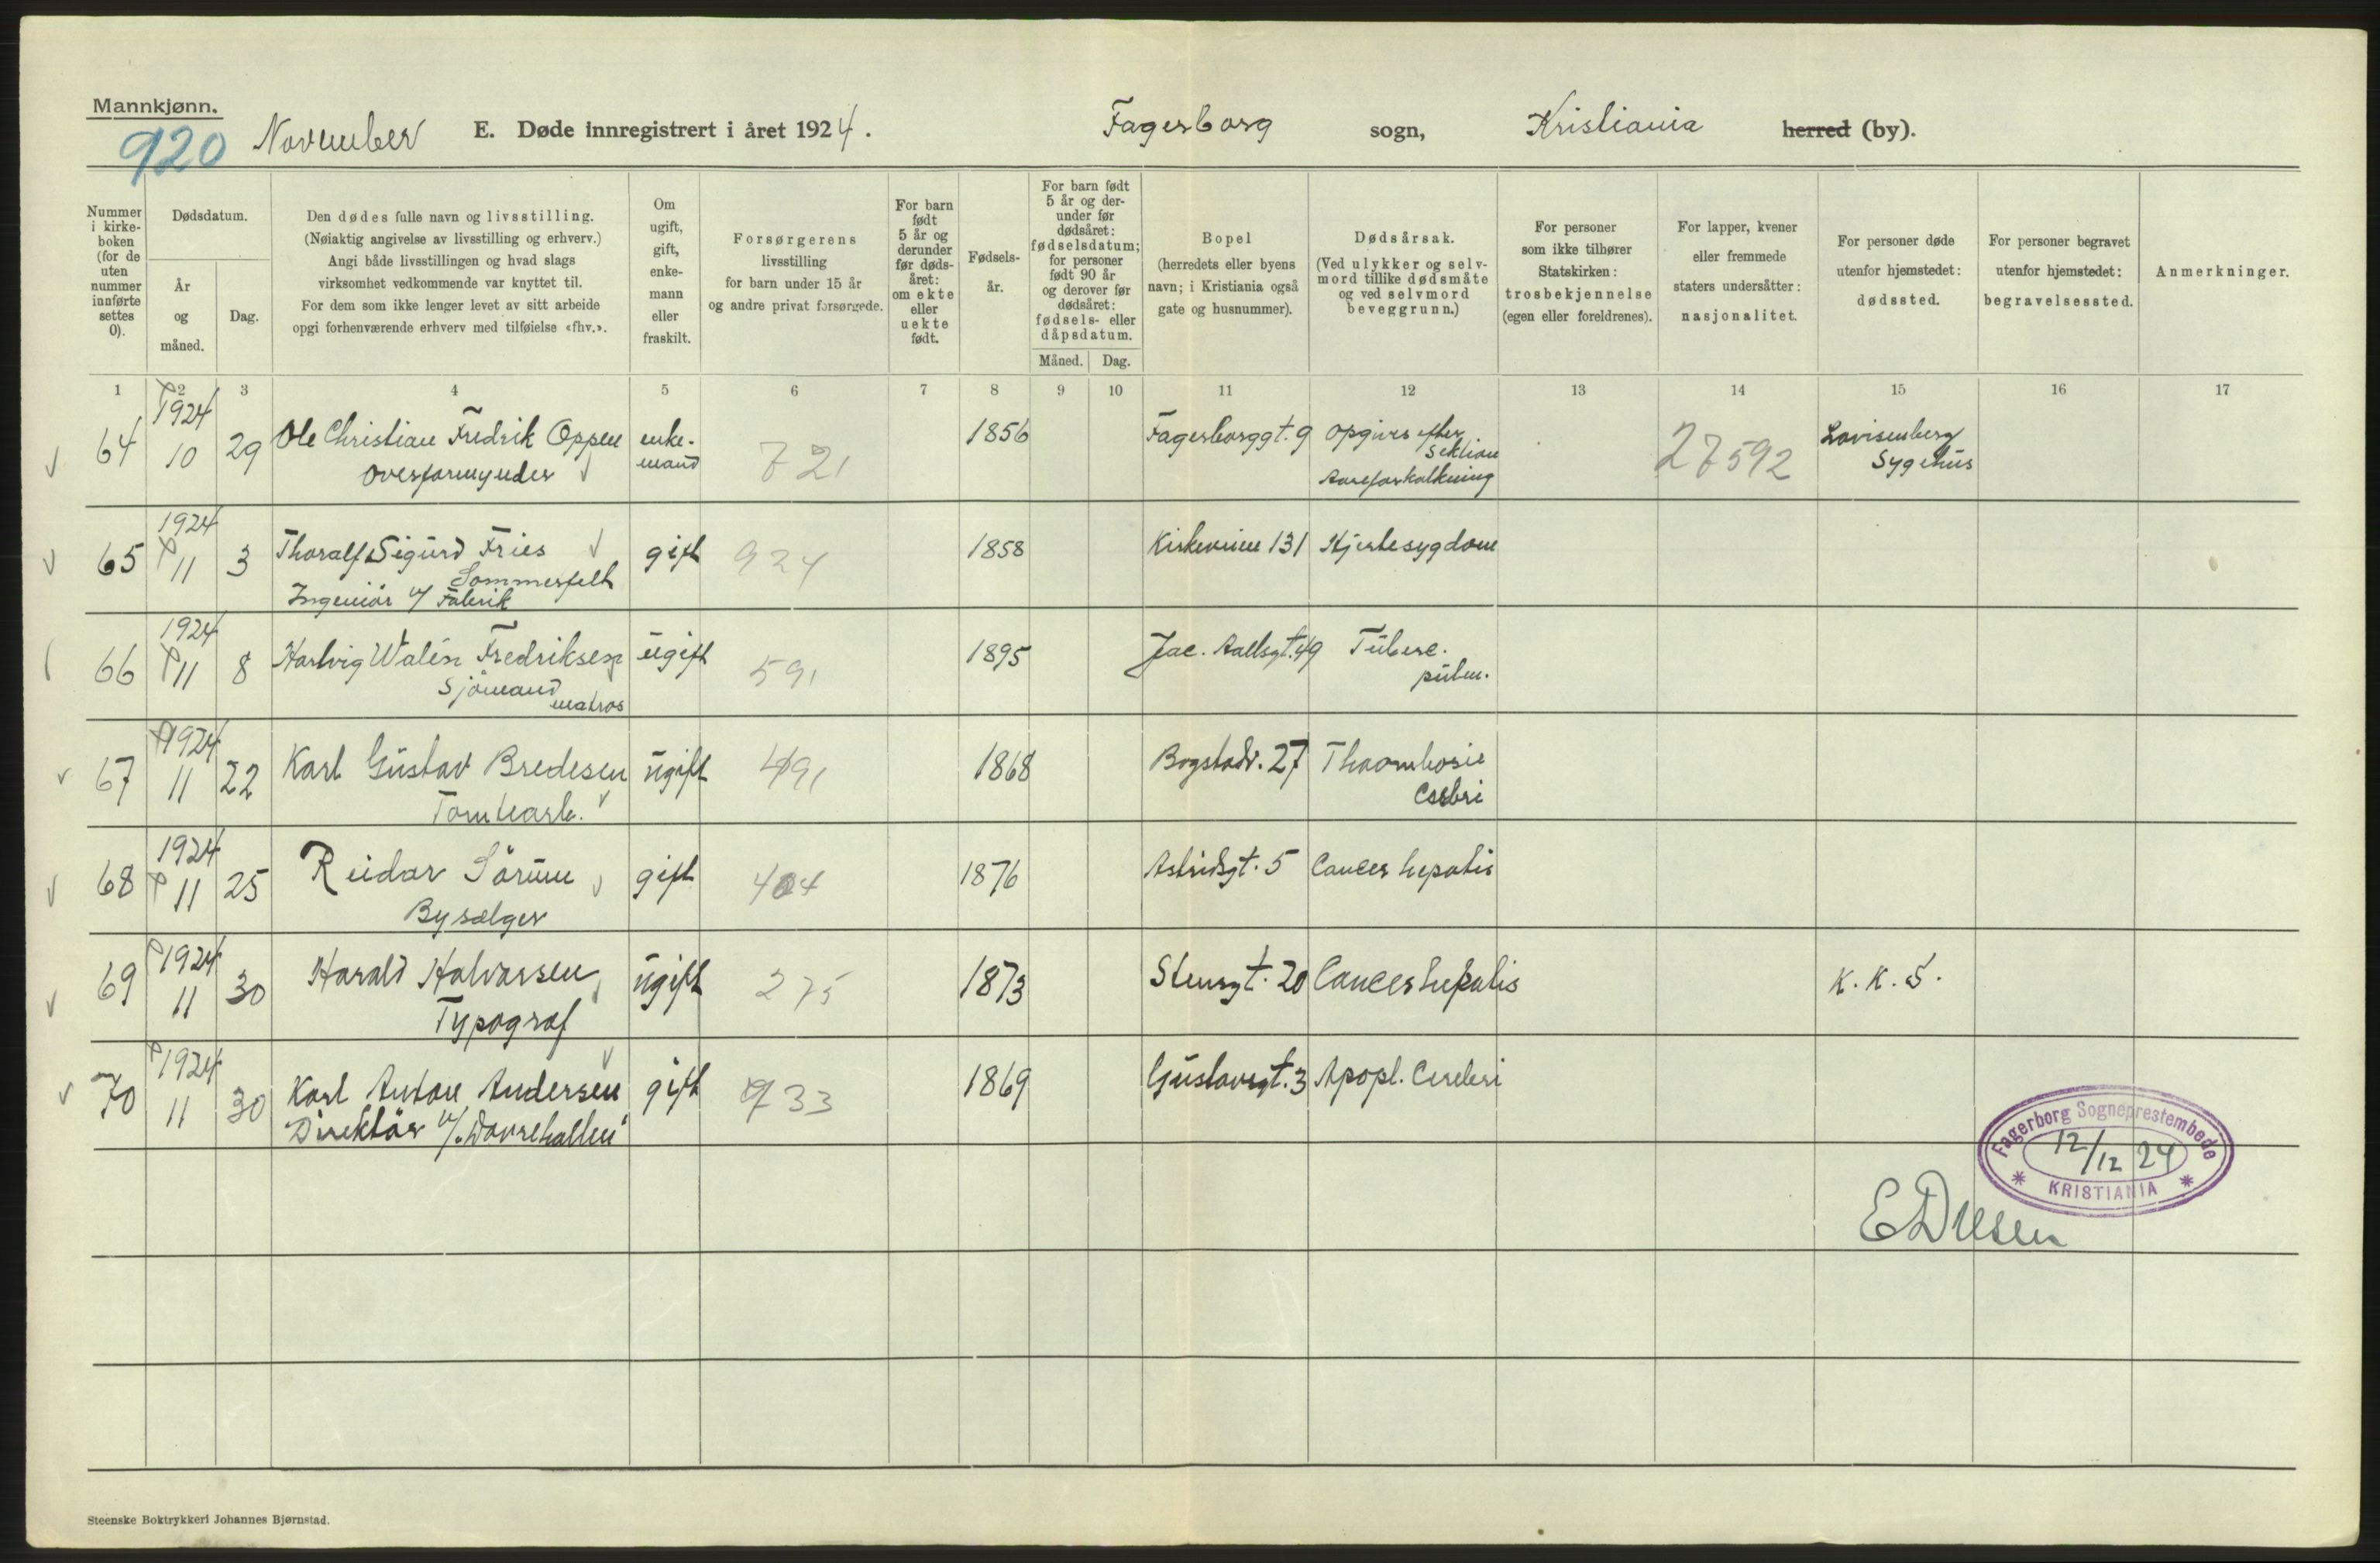 Mannkjønn.
920 November E. Døde innregistrert i året 1924. Fagerborg sogn, Kristiania herred (by).
Nummer i kirke- boken (for de uten nummer innførte settes 0).
Dødsdatum.
År og måned.
Dag.
Den dødes fulle navn og livsstilling.
(Nøiaktig angivelse av livsstilling og erhverv.)
Angi både livsstillingen og hvad slags
virksomhet vedkommende var knyttet til.
For dem som ikke lenger levet av sitt arbeide
opgi forhenværende erhverv med tilføielse «fhv.».
Om ugift, gift, enke- mann eller fraskilt.
Forsørgerens
livsstilling
for barn under 15 år
og andre privat forsørgede.
For barn født 5 år og derunder før døds- året: om ekte eller uekte født.
Fødsels- år.
For barn født 5 år og der- under før dødsåret: fødselsdatum; for personer født 90 år og derover før dødsåret: fødsels- eller dåpsdatum.
Måned. Dag.
Bopel
(herredets eller byens
navn; i Kristiania også
gate og husnummer).
Dødsårsak.
(Ved ulykker og selv-
mord tillike dødsmåte
og ved selvmord
beveggrunn.)
For personer
som ikke tilhører
Statskirken:
trosbekjennelse
(egen eller foreldrenes).
For lapper, kvener
eller fremmede
staters undersåtter:
nasjonalitet.
For personer døde
utenfor hjemstedet:
dødssted.
For personer begravet
utenfor hjemstedet:
begravelsessted.
Anmerkninger.
1 2 3 4 5 6 7 8 9 10 11 12 13 14 15 16 17
64 1924 10 29 Ole Christian Fredrik Oppen enke- mand 721 1856 Fagerborggt. 9 opgives efter Sektion 27592 Lovisenberg Sygehus
Overformynder Aareforkalkning
65 1924 11 3 Thoralf Sigurd Fries gift 924 1858 Kirkeveien 131 Hjertesygdom
Sommerfelt
Ingeniør v/ Fabrik
66 1924 11 8 Hartvig Walén Fredriksen ugift 591 1895 Jac. Aallsgt. 49 Tuberc.
Sjömand pulm.
matros
67 1924 11 22 Karl Gustav Bredesen ugift 491 1868 Bogstadv. 27 Thrombosie
Tomtearb. Cerbri
68 1924 11 25 Reidar Sörum gift 404 1876 Astridsgt. 5 Cancer hepatis
Bysælger
69 1924 11 30 Harald Halvorsen ugift 275 1873 Stensgt. 20 Cancer hepatis K. K. S.
Typograf
70 1924 11 30 Karl Anton Andersen gift 933 1869 Gustavsgt. 3 Apopl. Cerebri
Direktör v/ "Dovrehallen"
Fagerborg Sogneprestembede
12/12 24
KRISTIANIA
E Diesen
Steenske Boktrykkeri Johannes Bjørnstad.